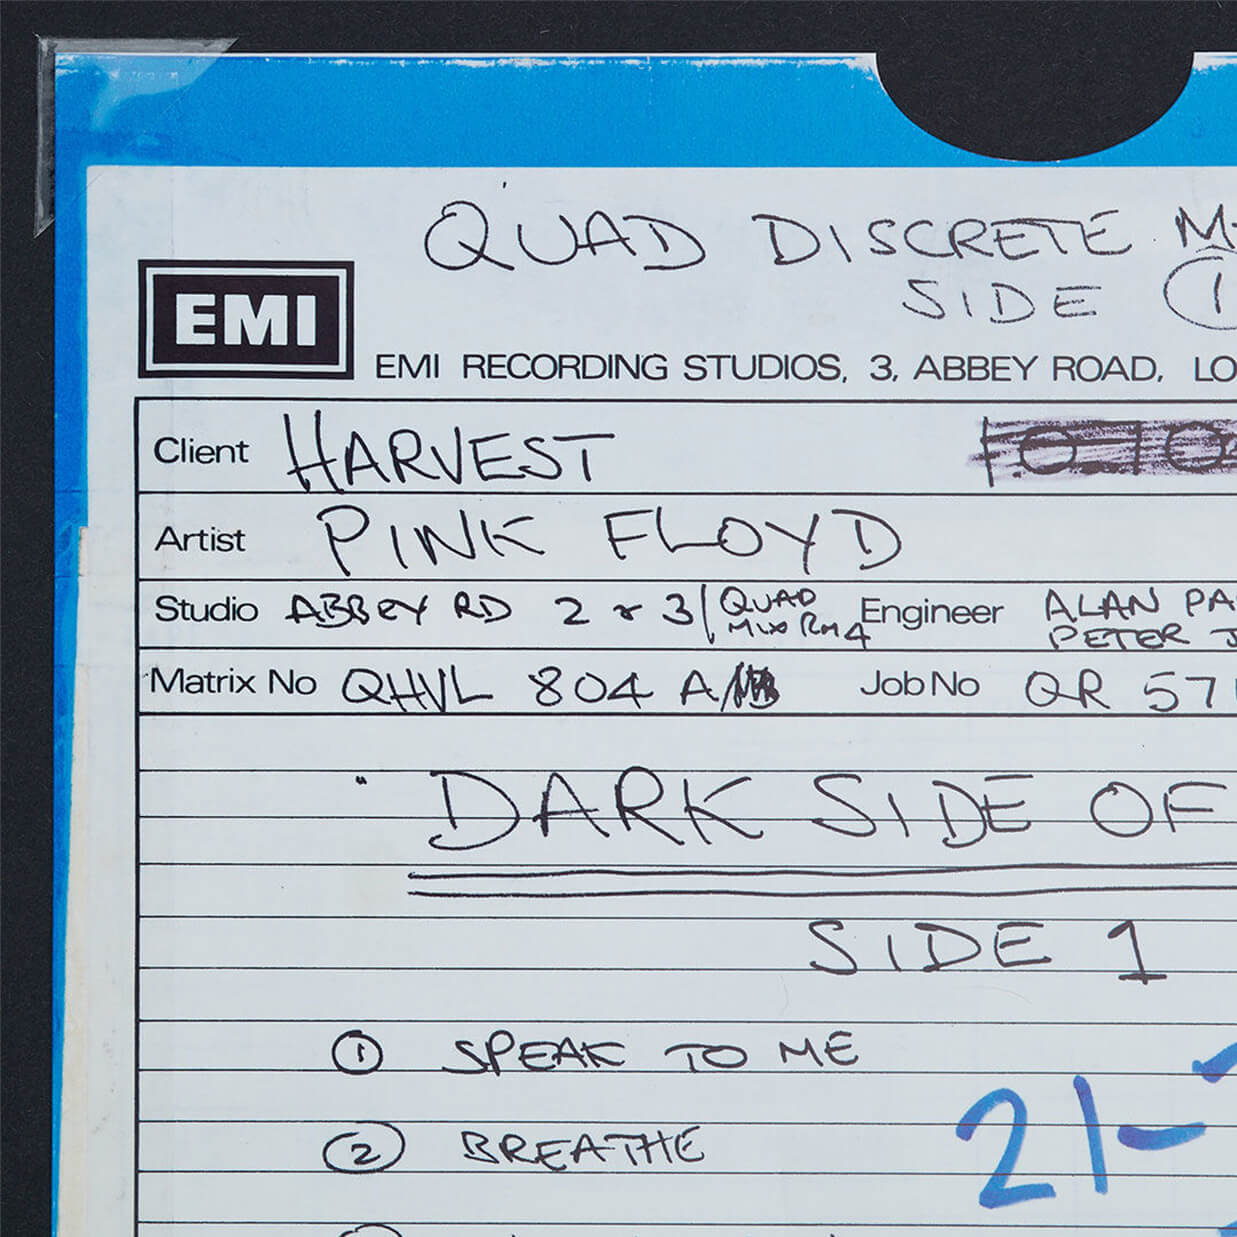 QUAD DISCRETE M
SIDE 1
EMI
EMI RECORDING STUDIOS, 3, ABBEY ROAD, LO
Client HARVEST
Artist PINK FLOYD
Studio ABBEY RD 2 & 3/ QUAD MIX RM 4 Engineer ALAN PA
PETER J
Matrix No QHVL 804 A Job No QR 57
" DARK SIDE OF
SIDE 1
1 SPEAK TO ME
2 BREATHE
21-